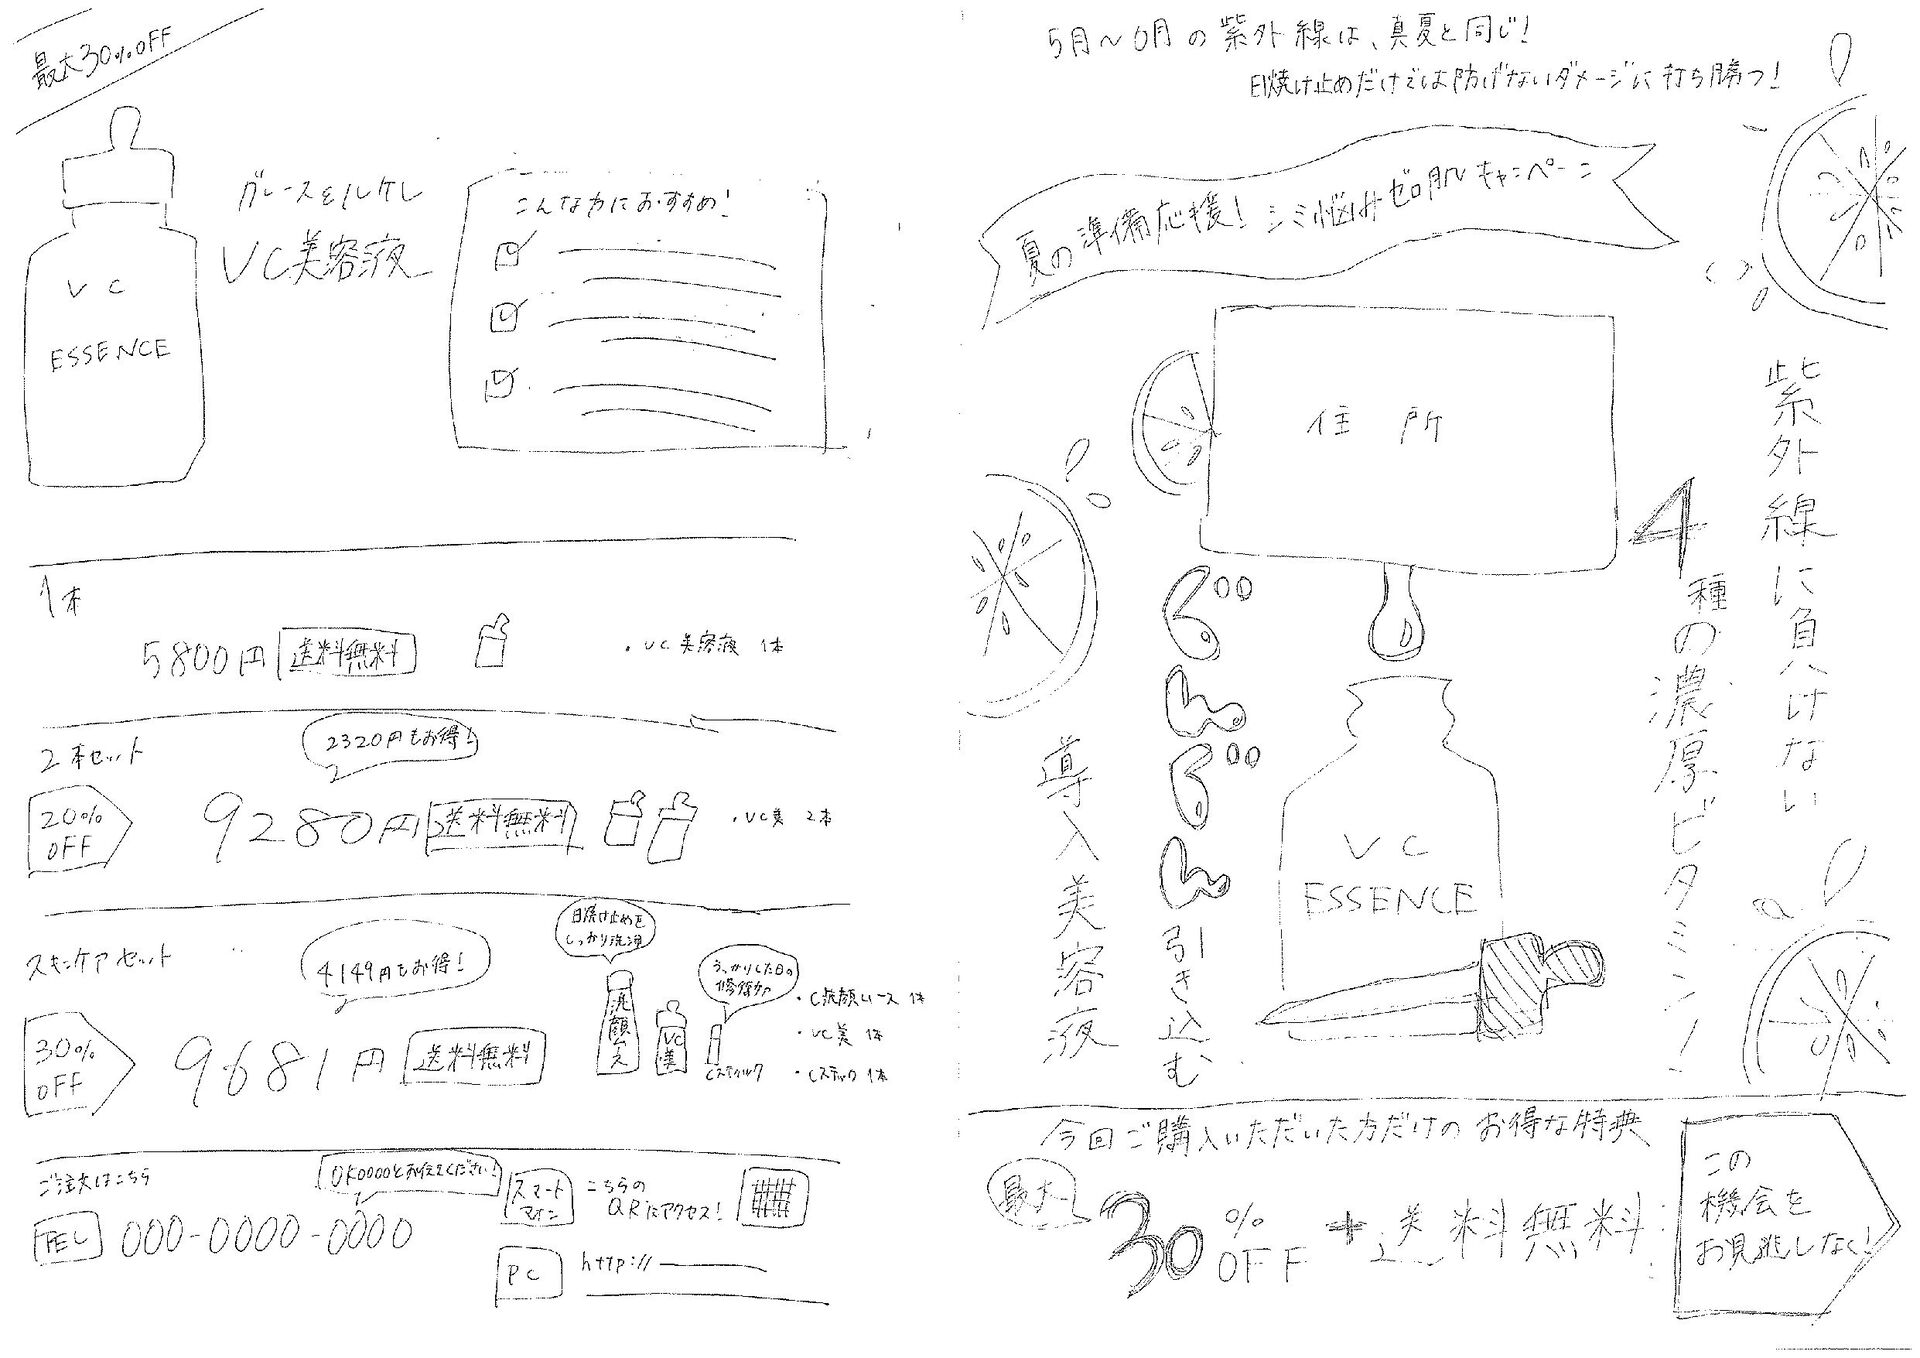 最大30%OFF
VC
ESSENCE
VC美容液
こんな方におすすめ!
1本
5800円 送料無料
・VC美容液 1本
2本セット
2320円もお得!
20%
OFF
9280円 送料無料
・VC美 2本
スキンケアセット
4149円もお得!
30%
OFF
9681円 送料無料
日焼け止めを
しっかり洗浄
うっかりした日の
洗顔ムース
VC美
Cスティック
・C洗顔ムース 1本
・VC美 1本
・Cスティック 1本
ご注文はこちら
OK0000とお伝えください!
TEL 000-0000-0000
スマート
こちらの
QRにアクセス!
PC http://
5月〜6月の紫外線は、真夏と同じ!
日焼け止めだけでは防げないダメージに打ち勝つ!
夏の準備応援!シミ悩みゼロ肌キャンペーン
住所
紫外線に負けない
4種の濃厚ビタミン!
ぐんぐん引き込む
導入美容液
VC
ESSENCE
今回ご購入いただいた方だけのお得な特典
最大
30%OFF+送料無料
この
機会を
お見逃しなく!